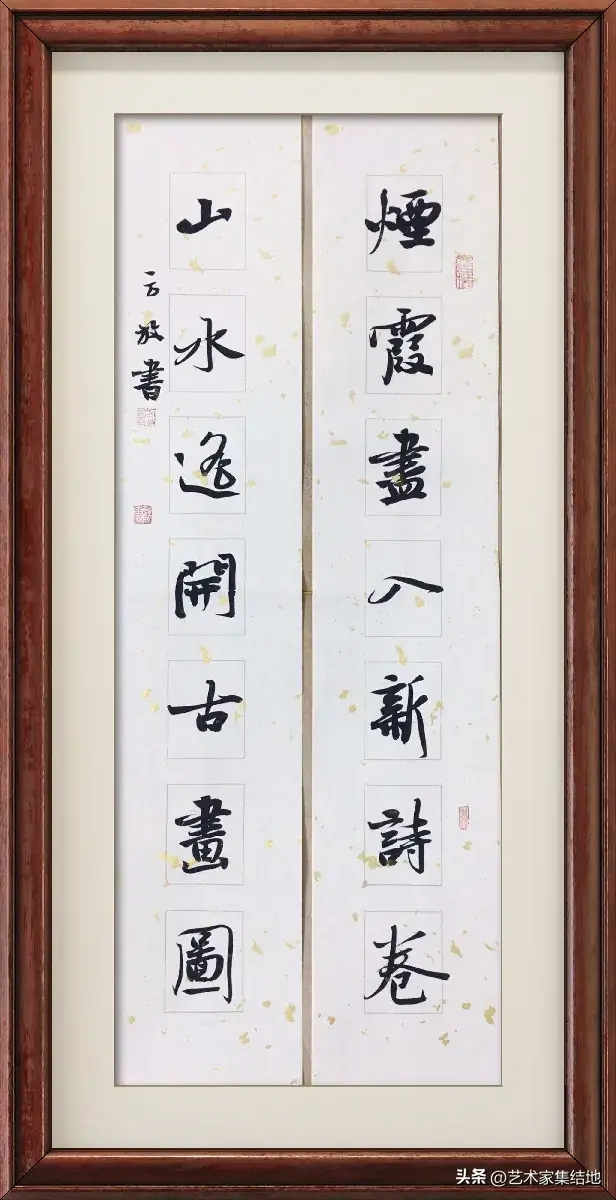 煙霞盡入新詩卷
山水遥開古畫圖
方放書
头条 @艺术家集结地